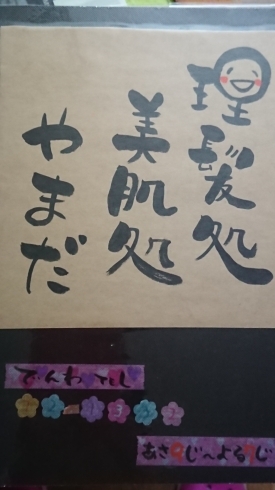 理髪処
美肌処
やまだ
でんわTEL
あさ じ〜よる じ